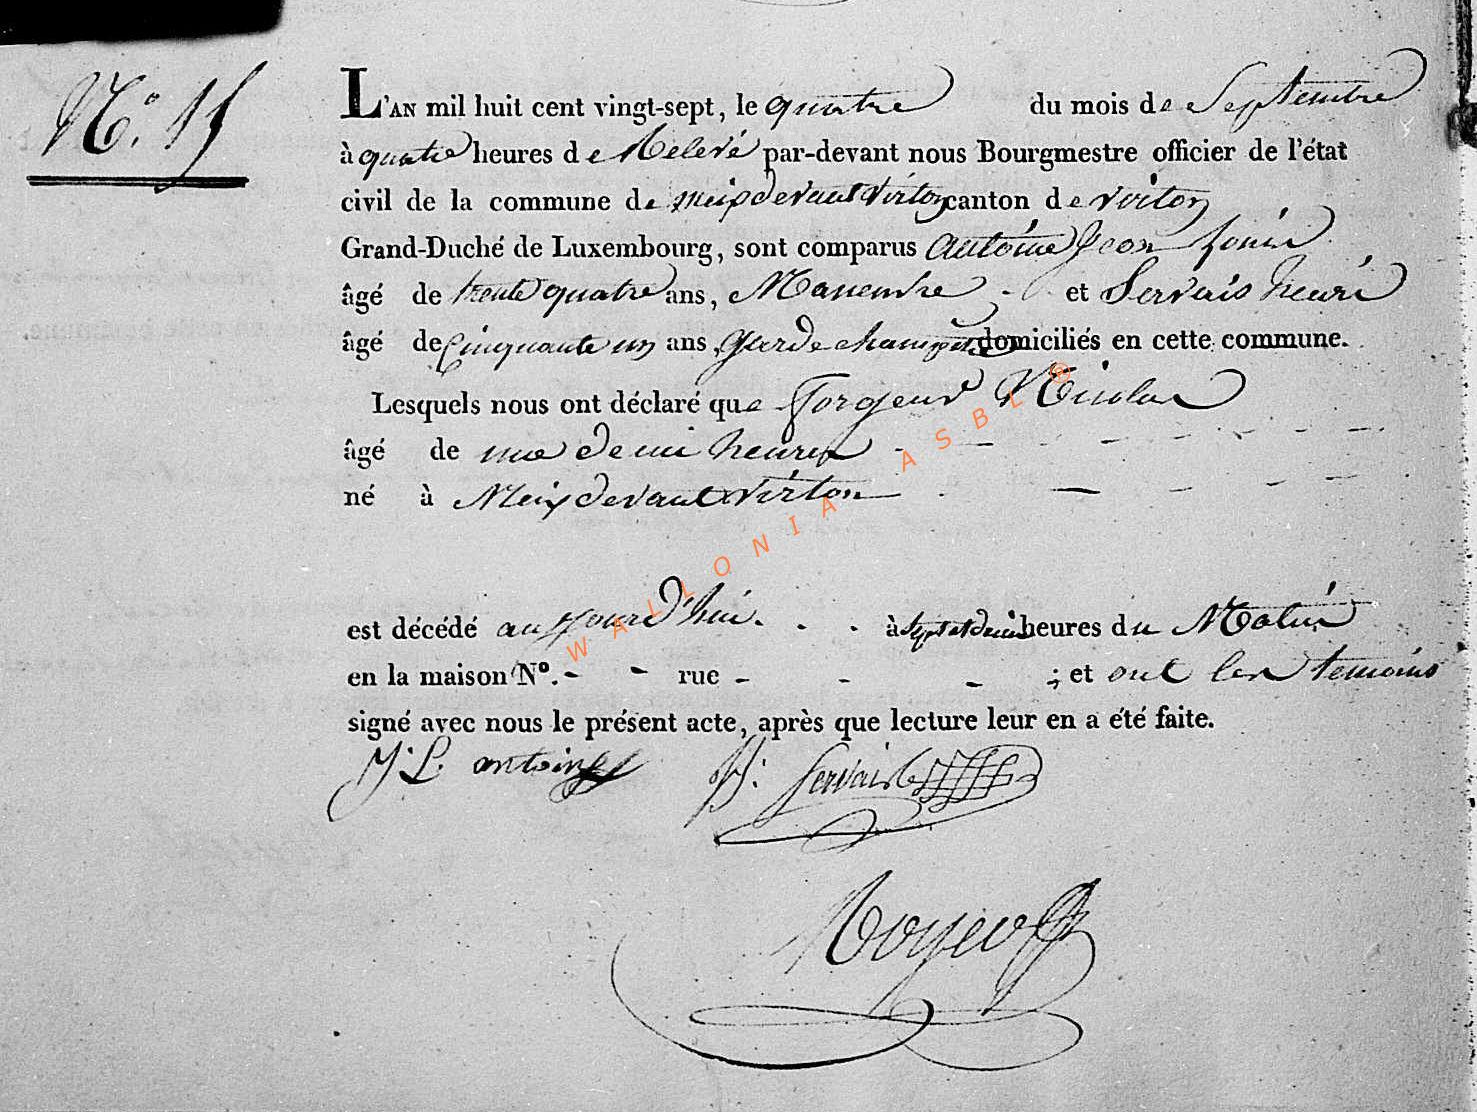 N° 15
L'AN mil huit cent vingt-sept, le quatre du mois de Septembre
à quatre heures de Relevé par-devant nous Bourgmestre officier de l'état
civil de la commune de meix devant Virton canton de virton
Grand-Duché de Luxembourg, sont comparus Antoine Jean Louis
âgé de trente quatre ans, Manœuvre et Servais henri
âgé de Cinquante un ans, Garde champetre domiciliés en cette commune.
Lesquels nous ont déclaré que Forgeur Nicolas
âgé de une demi heures
né à Meix devant virton
est décédé aujourd'hui à sept et demi heures du Matin
en la maison N°. - - rue - - - ; et ont les temoins
signé avec nous le présent acte, après que lecture leur en a été faite.
J. L. antoine H. Servais
WALLONIA ASBL ®